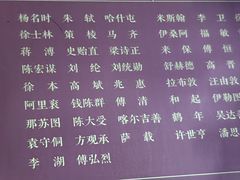 杨名时 朱 轼 哈什屯 米斯翰 李 卫
徐士林 策 棱 马 齐 伊桑阿 福 敏
蒋 溥 史贻直 梁诗正 来 保 傅 恒
陈宏谋 刘 纶 刘统勋 舒赫德 高 晋
徐 本 高 斌 兆 惠 拉布敦 汪由敦
阿里衮 钱陈群 傅 清 和 起
那苏图 陈大受 喀尔吉善 鹤 年 吴达善
袁守侗 方观承 萨 载 许世亨
李 湖 傅弘烈